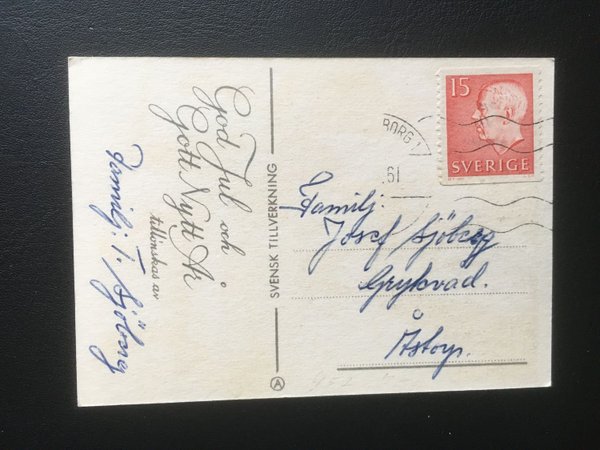 God Jul och
Gott Nytt År
tillönskas av
Familj. T. Sjöberg
SVENSK TILLVERKNING
A
15
SVERIGE
BORG 1
61
Familj:
Josef Sjöberg
Grytevad.
Åstorp.